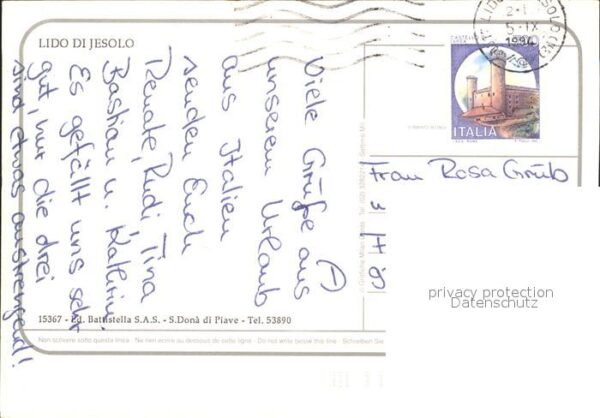 LIDO DI JESOLO
Viele Grüße aus
unserem Urlaub
aus Italien
senden Euch
Renate, Rudi, Tina
Bastian u. Kathrin.
Es gefällt uns sehr
gut, nur die drei
sind etwas anstrengend!
ITALIA
Frau Rosa Grüb
privacy protection
Datenschutz
15367 - Ed. Battistella S.A.S. - S.Donà di Piave - Tel. 53890
Non scrivere sotto questa linea - Ne rien écrire au dessous de cette ligne - Do not write below this line - Schreiben Sie